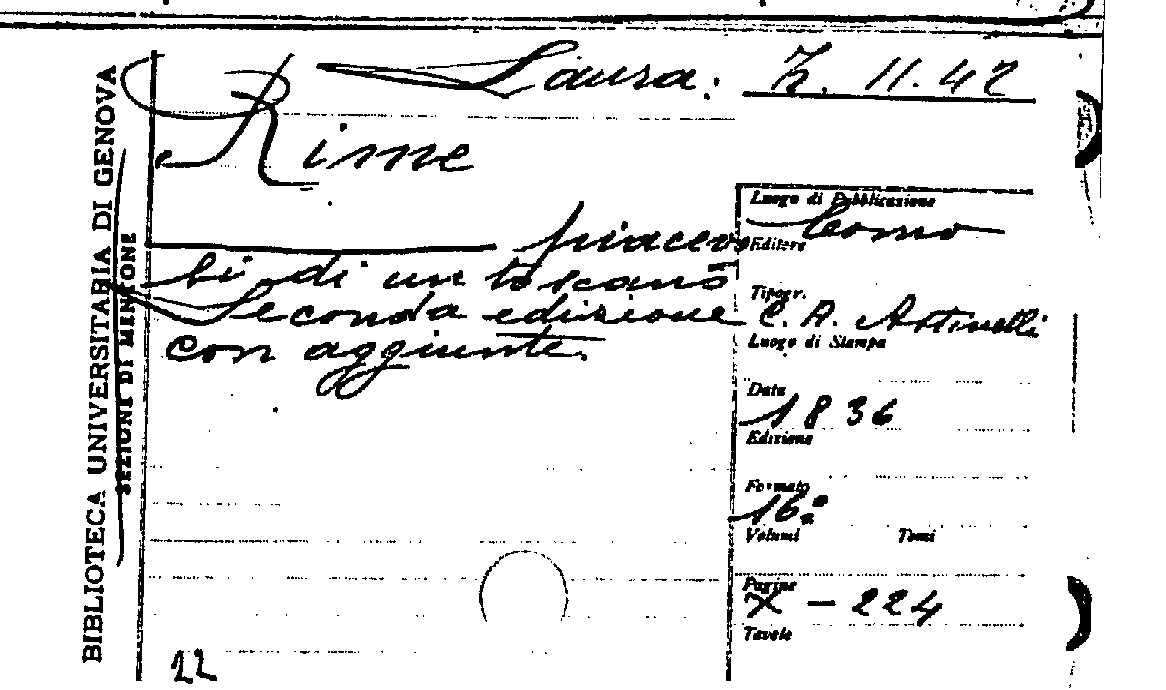 Laura: Z. 11.42
Rime
BIBLIOTECA UNIVERSITARIA DI GENOVA
SEZIONI DI MINIONE
piacevo
li di un toscano
Seconda edizione
con aggiunte.
Luogo di Pubblicazione
Como
Editore
Tipogr.
C. A. Ostinelli
Luogo di Stampa
Data
1836
Edizione
Formato
16º
Volumi Tomi
Pagine
X - 224
Tavole
22